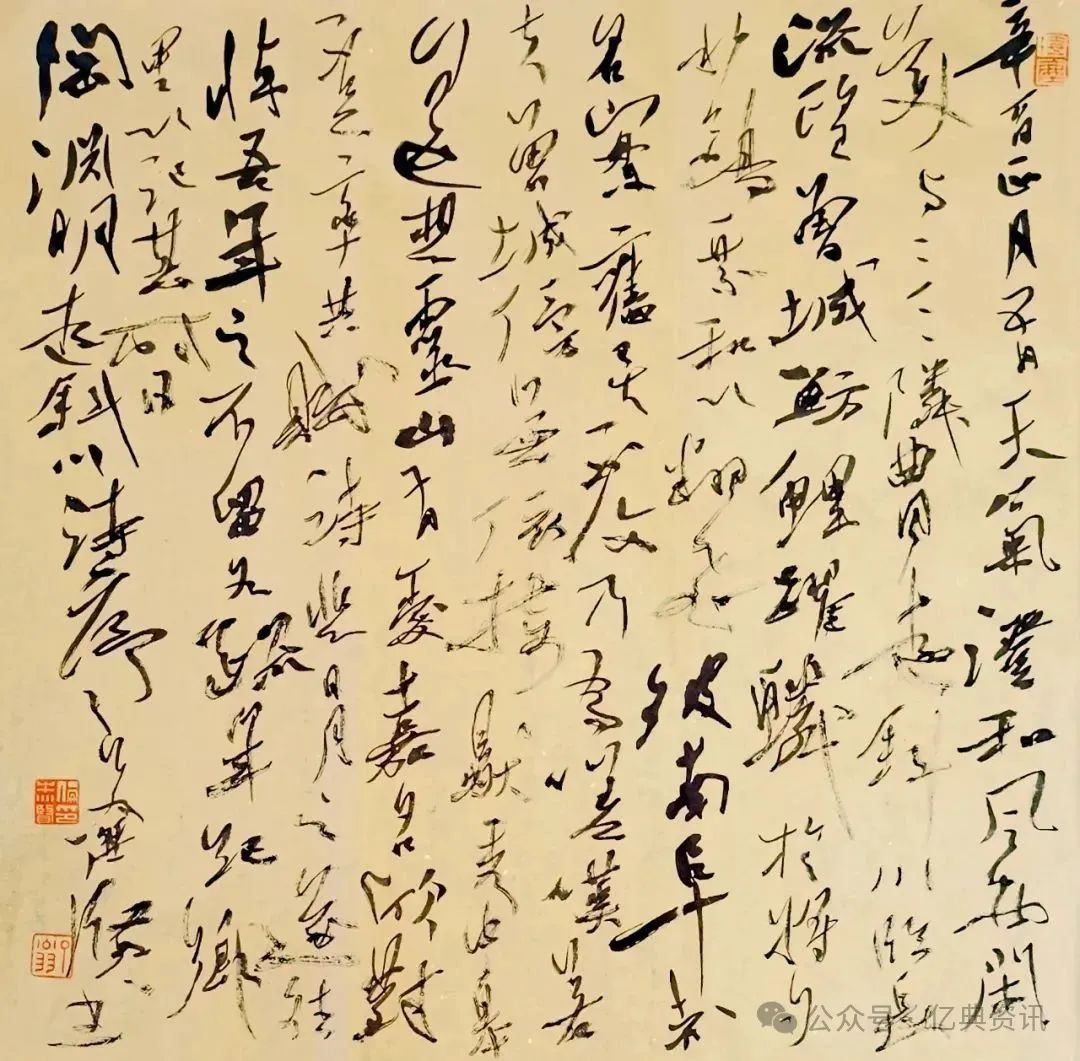 辛酉正月五日天氣澄和風物閑
美与二三隣曲同遊斜川臨長
流望曾城魴鯉躍鱗於將夕
水鷗乘和以翻飛彼南阜者
名實舊矣不復乃為嗟嘆若
夫曾城傍無依接獨秀中皋
遙想靈山有愛嘉名欣對
不足率共賦詩悲日月之遂往
悼吾年之不留各疏年紀鄉
里以記其時日
陶淵明遊斜川詩序 書
公众号·亿典资讯